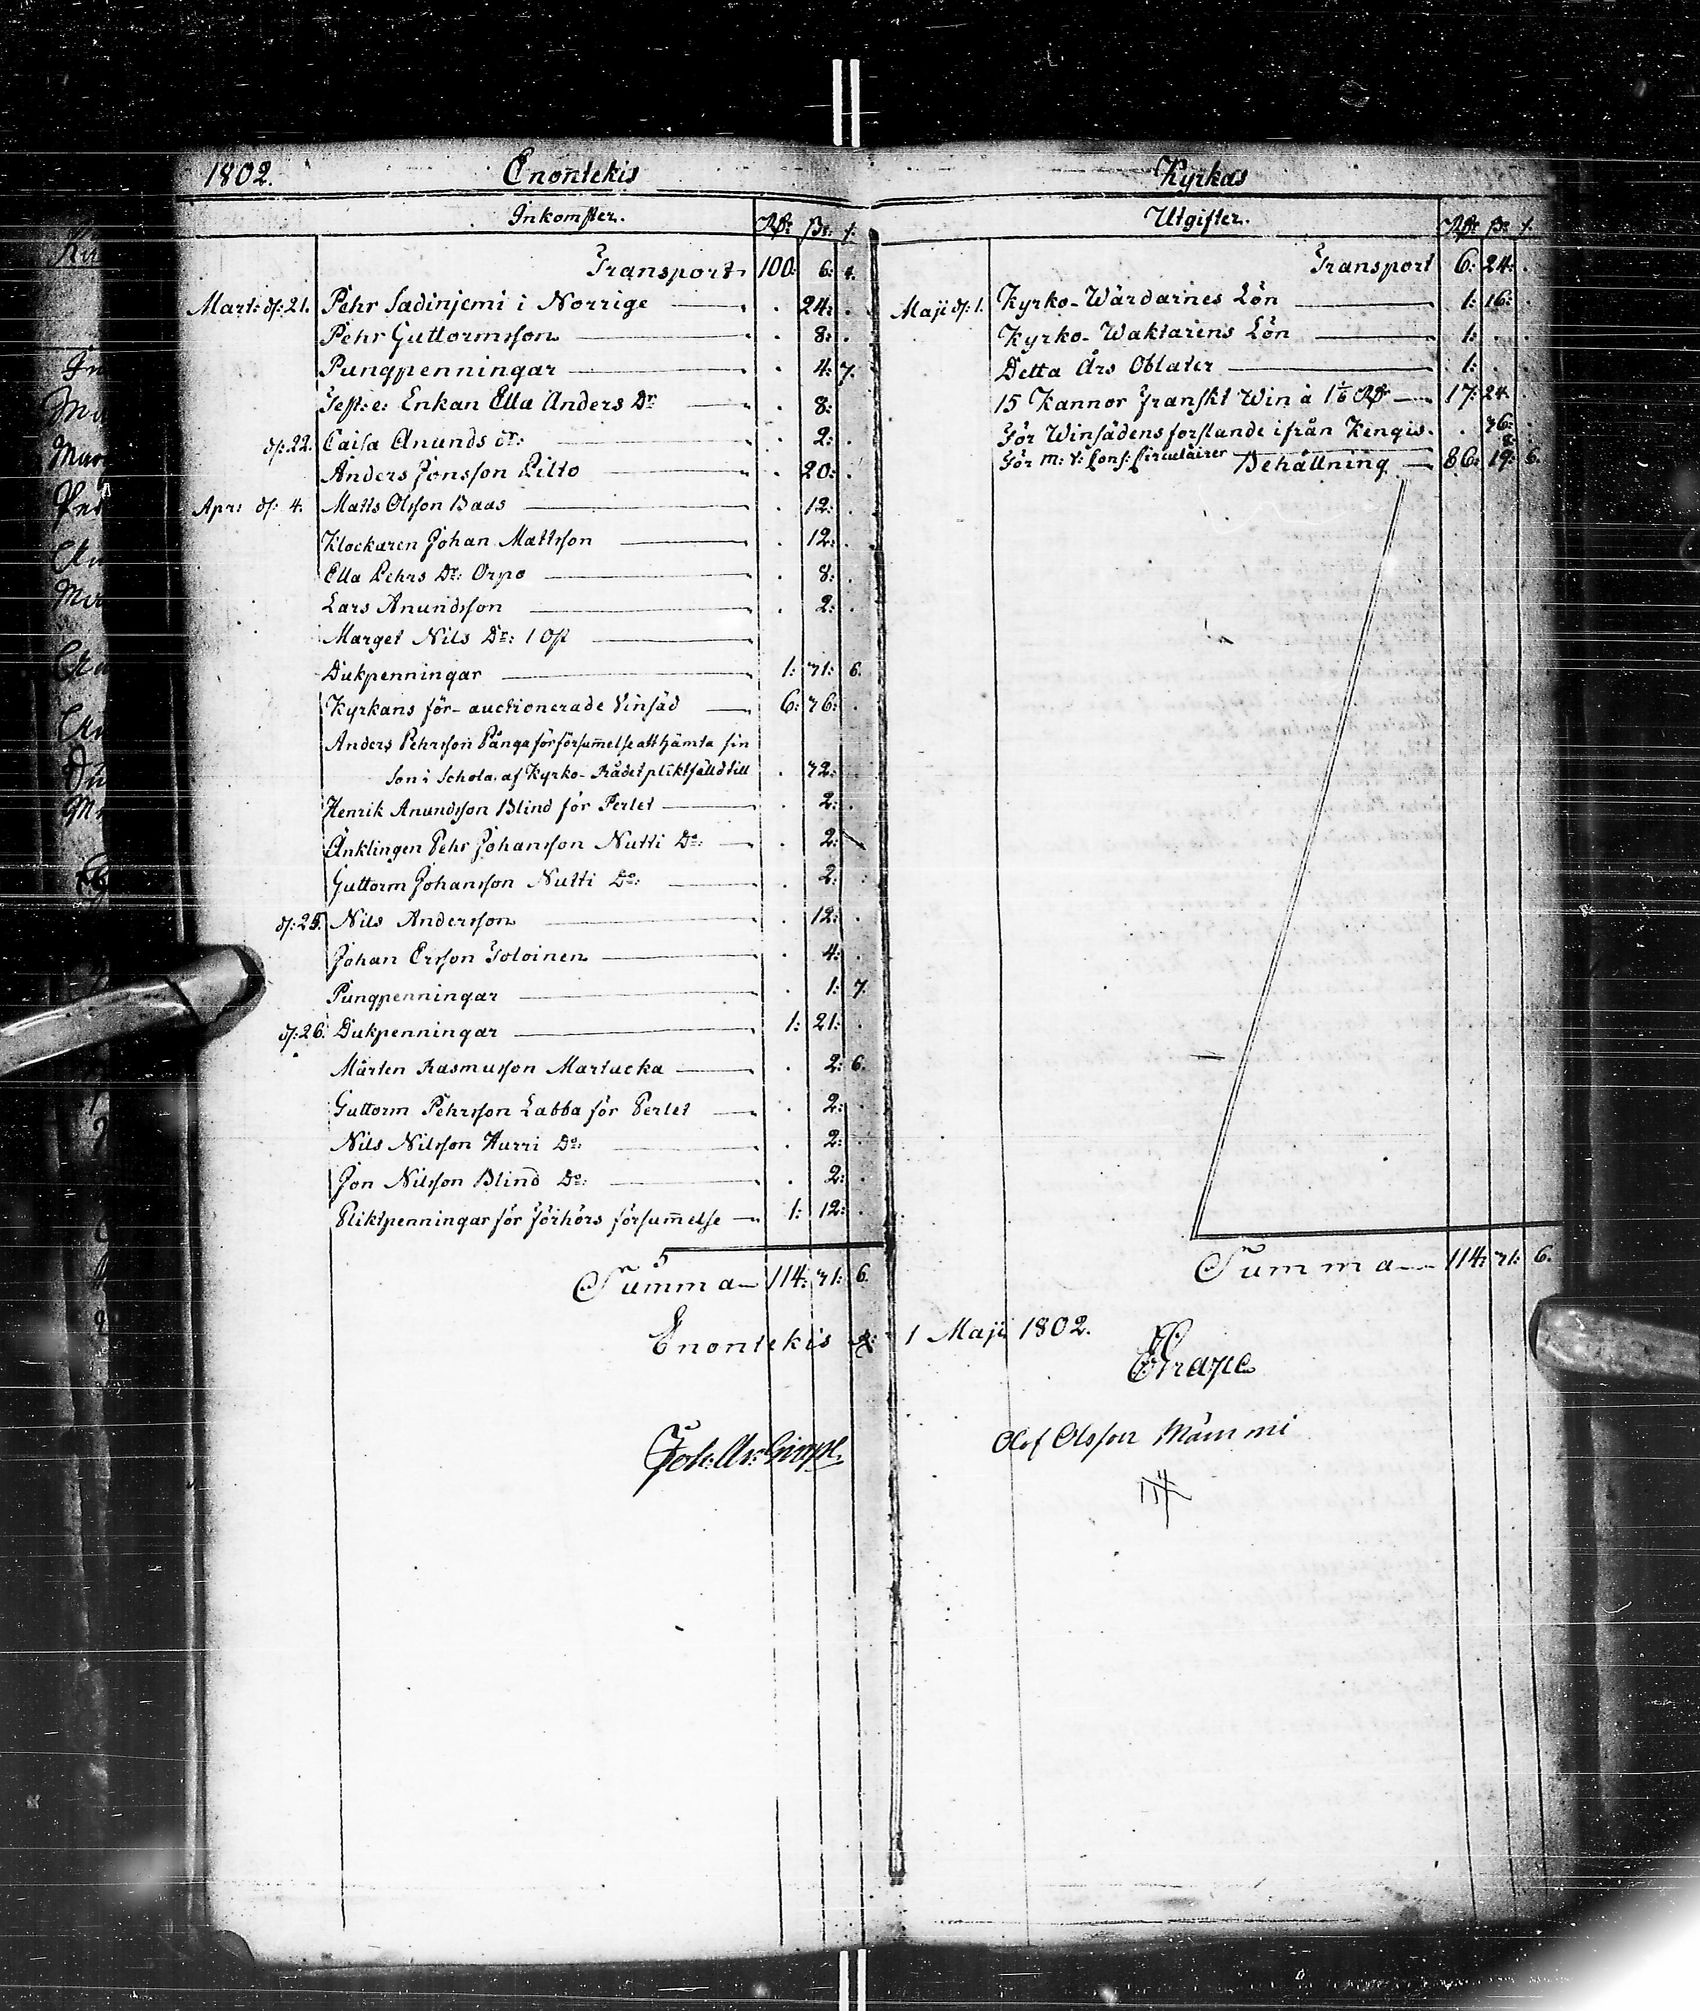 1802. Enontekis
Inkomster. Rdr ßr. r.
Transport 100: 6: 4.
Mart: d: 21. Pehr Sadinjemi i Norrige . 24: .
Pehr Guttormsson . 8: .
Pungpenningar . 4: 7.
Test: e: Enkan Ella Anders Dr . 8: .
d: 22. Caisa Anunds dr: . 2: .
Anders Jonsson Pilto . 20: .
Apr: d: 4. Matts Olsson Baas . 12: .
Klockaren Johan Mattsson . 12: .
Ella Pehrs Dr: Orpo . 8: .
Lars Anundsson . 2: .
Marget Nils Dr: 1 Ost
Dukpenningar 1: 71: 6.
Kyrkans för-auctionerade Vinsäd 6: 76: .
Anders Pehrsson Pånga för försummelse att hämta sin
son i Schola. af Kyrko-Rådet pliktfälld till . 72: .
Henrik Anundsson Blind för Pertet . 2: .
Änklingen Pehr Johansson Nutti Do: . 2:
Guttorm Johansson Nutti Do: . 2: .
d: 25. Nils Andersson . 12: .
Johan Ersson Toloinen . 4: .
Pungpenningar . 1: 7.
d: 26. Dukpenningar 1: 21: .
Mårten Rasmusson Martucka . 2: 6.
Guttorm Pehrsson Labba för Pertet . 2: .
Nils Nilsson Hurri Do: . 2: .
Jon Nilsson Blind Do: . 2: .
Pliktpenningar för Förhörs försummelse 1: 12: .
Summa 114: 71: 6.
Kyrkas
Utgifter. Rdr ßr r.
Transport 6: 24: .
Maji d: 1. Kyrko-Wärdarnes Lön 1: 16: .
Kyrko-Waktarens Lön 1: . .
Detta Års Oblater 1: . .
15 Kannor Franskt Win à 1 1/6 Rdr 17: 24. .
För Winsädens forslande ifrån Kengis . 76: .
För M: V: Cons: Circulairer Behållning 86: 19: 6.
Summa 114: 71: 6.
Enontekis d: 1 Maji 1802.
Olof Olsson Mämmi